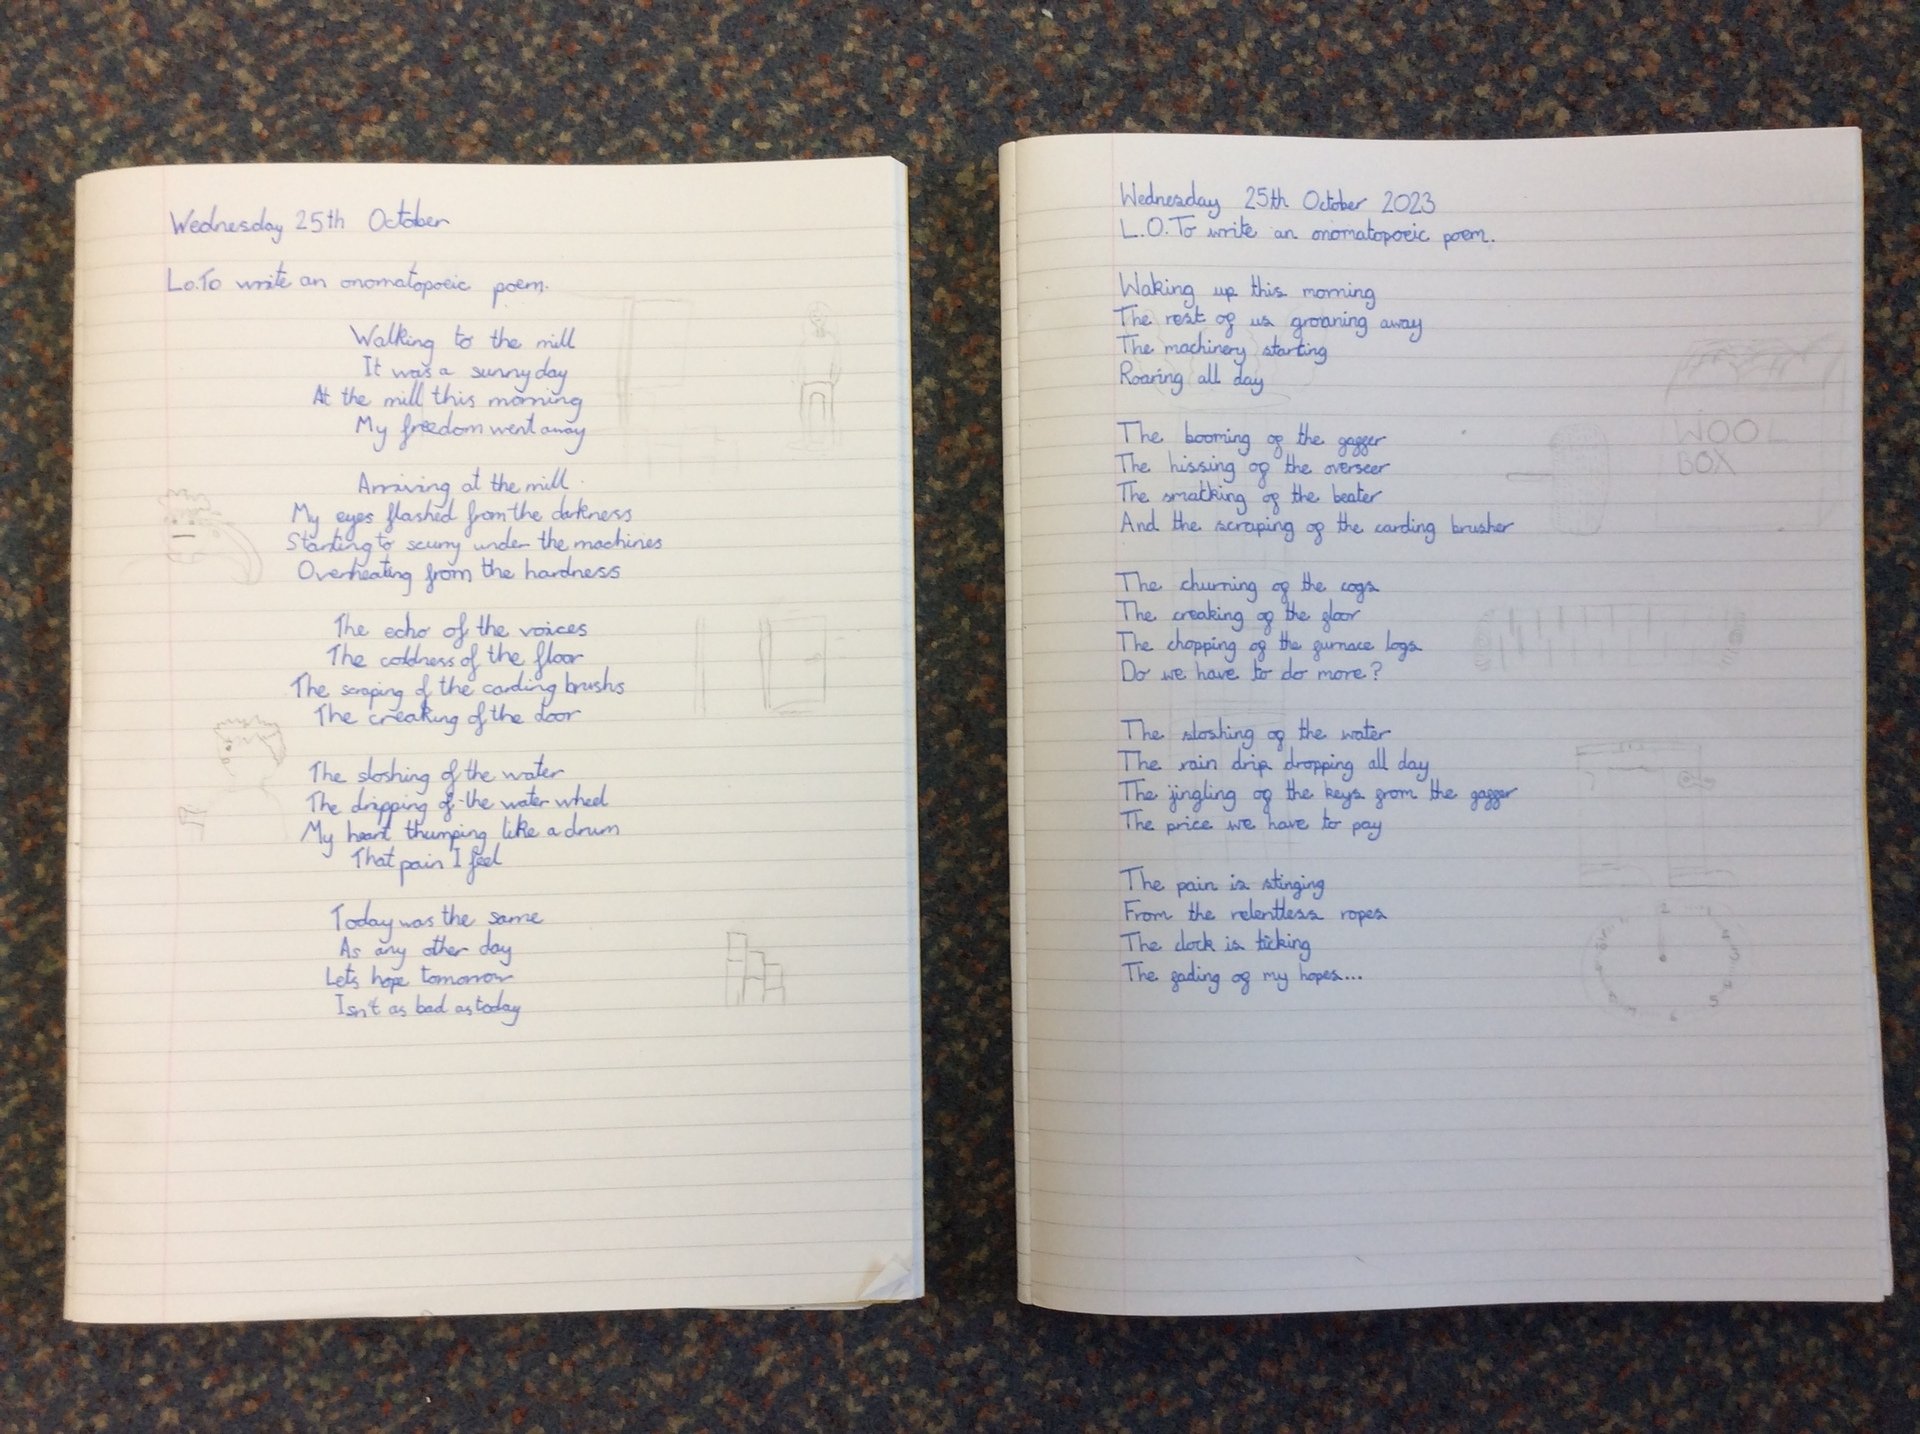 Wednesday 25th October
L.o.To write an onomatopoeic poem.
Walking to the mill
It was a sunny day
At the mill this morning
My freedom went away
Arriving at the mill.
My eyes flashed from the darkness
Starting to scurry under the machines
Overheating from the hardness
The echo of the voices
The coldness of the floor
The scraping of the carding brushs
The creaking of the door
The sloshing of the water
The dripping of the water wheel
My heart thumping like a drum
That pain I feel
Today was the same
As any other day
Lets hope tomorrow
Isn't as bad as today
Wednesday 25th October 2023
L.O.To write an onomatopoeic poem.
Waking up this morning
The rest of us groaning away
The machinery starting
Roaring all day
The booming of the gaffer
The hissing of the overseer
The smatking of the beater
And the scraping of the carding brusher
WOOL
BOX
The churning of the cogs
The creaking of the floor
The chopping of the furnace logs
Do we have to do more?
The sloshing of the water
The rain drip dropping all day
The jingling of the keys from the gaffer
The price we have to pay
The pain is stinging
From the relentless ropes
The clock is ticking
The fading of my hopes...